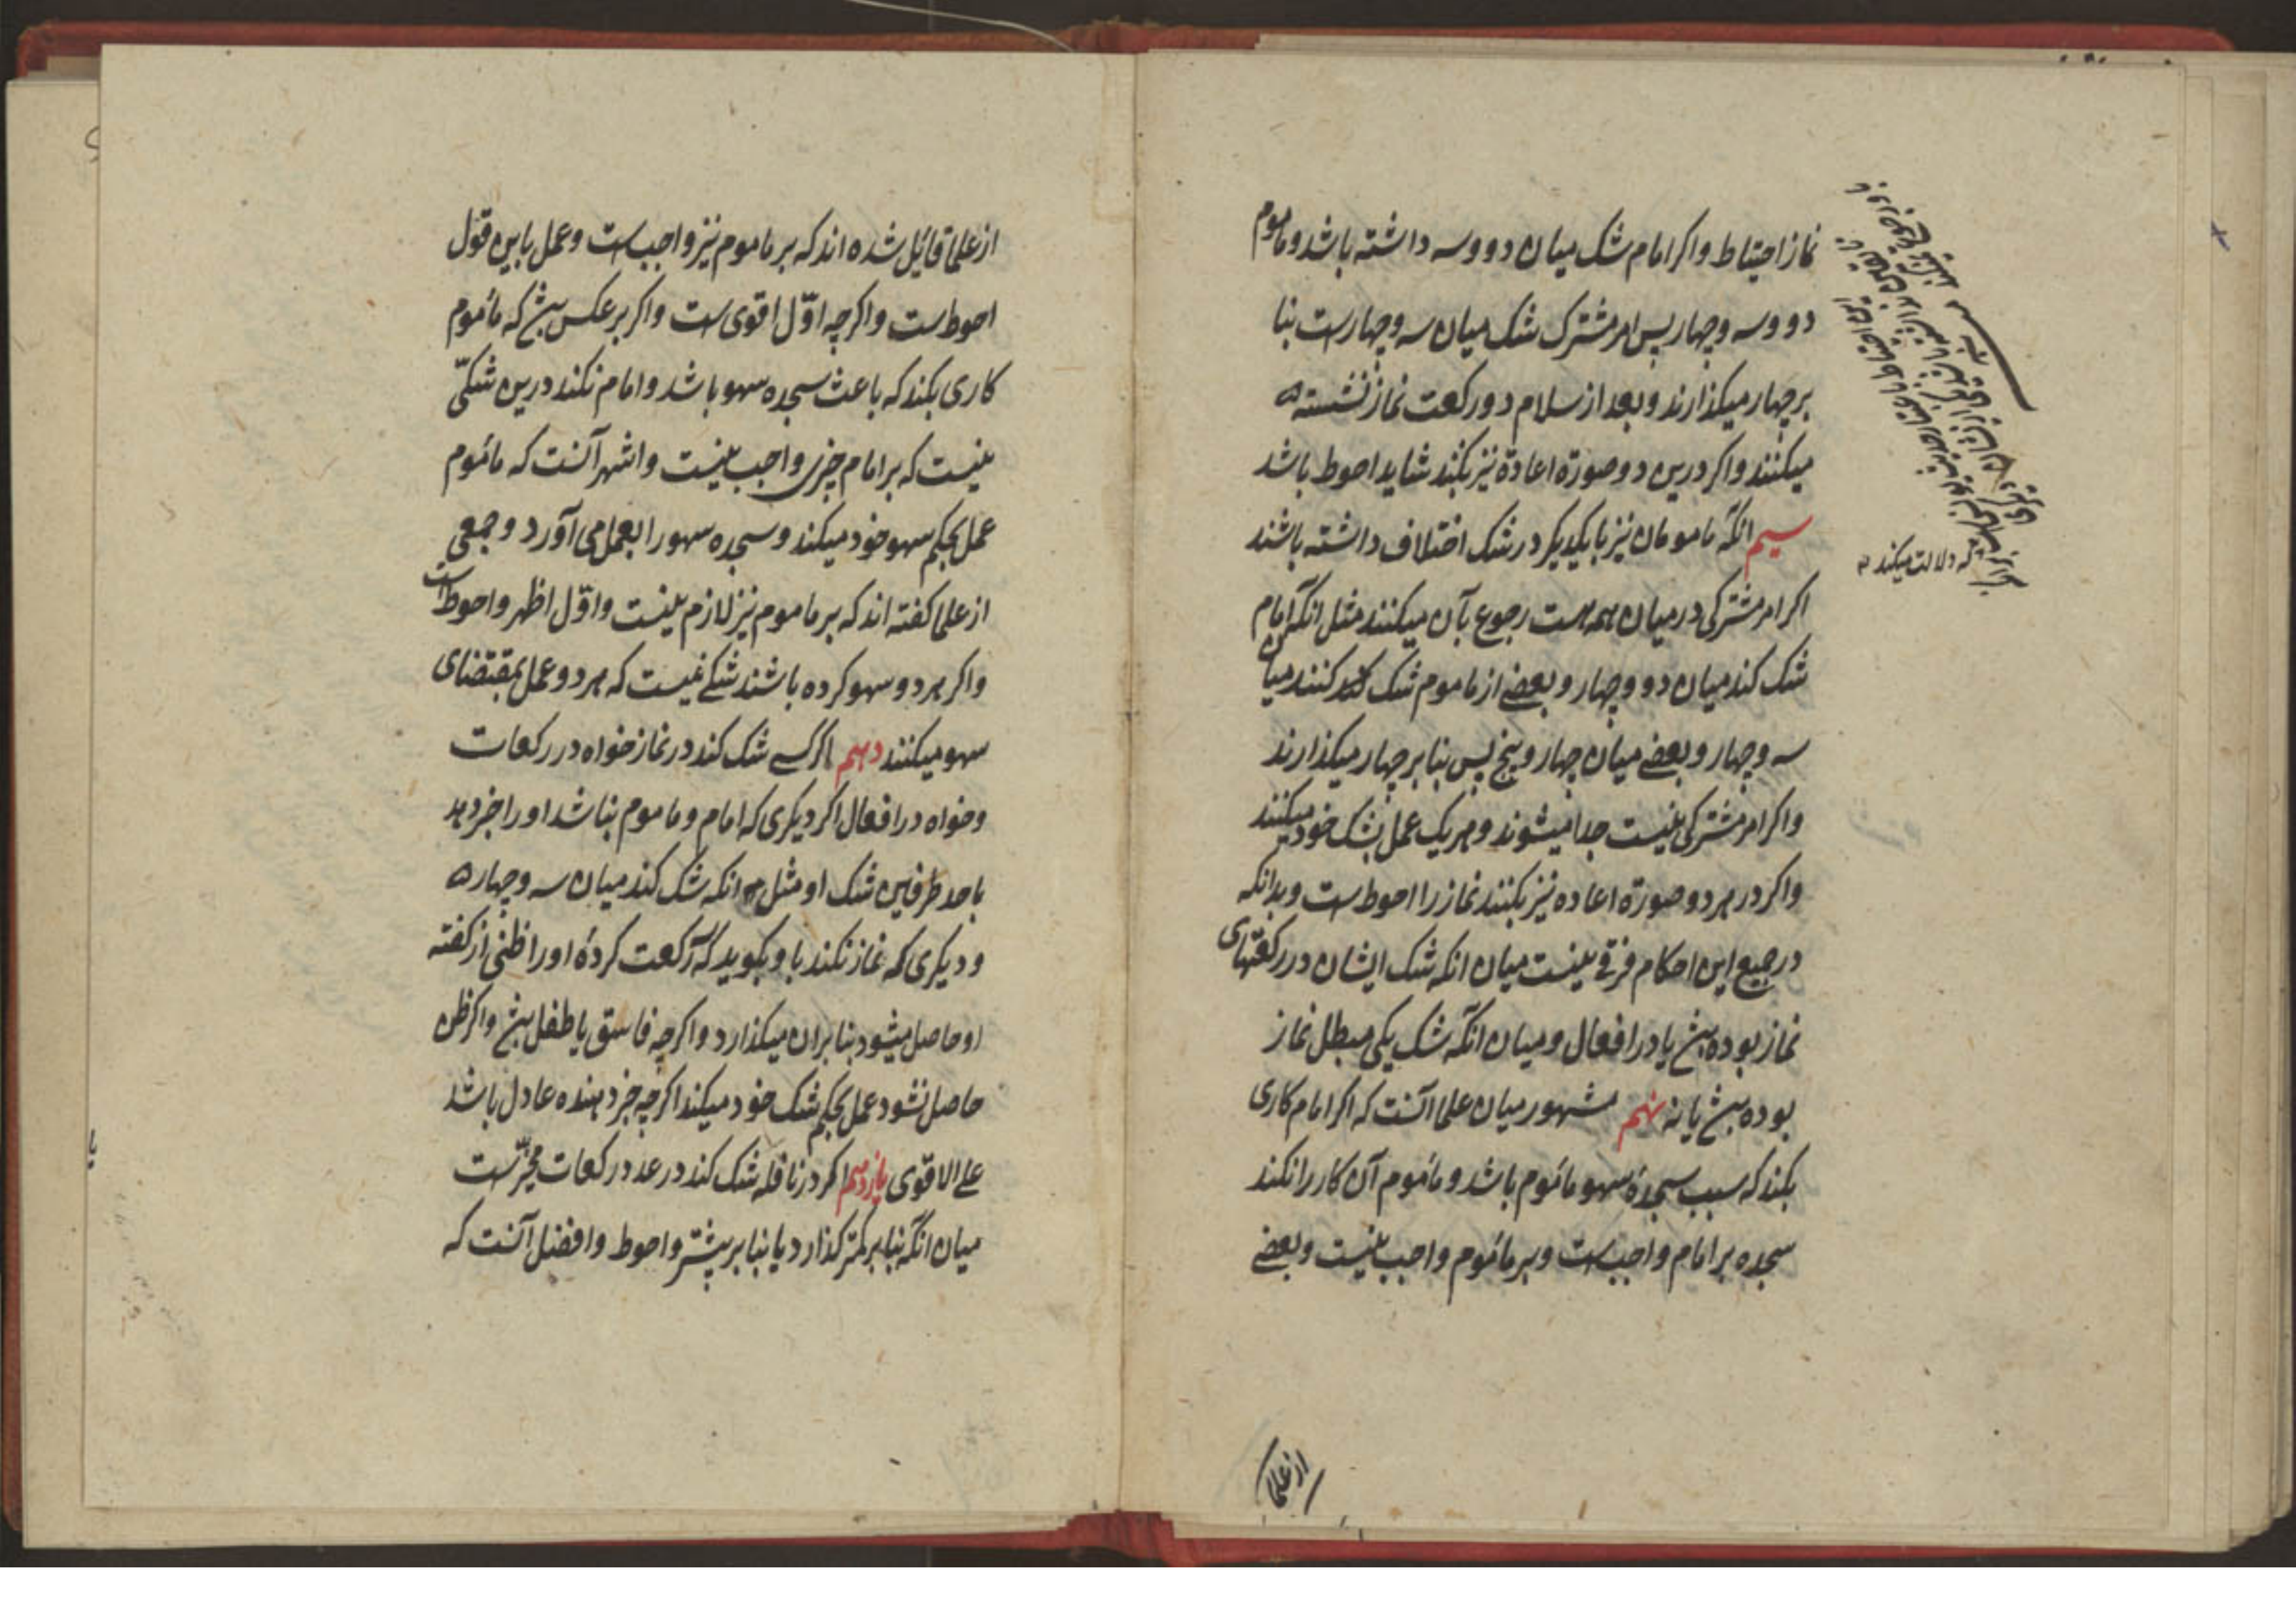 نماز احتیاط و اکر امام شک میان دو و سه داشته باشد و ماموم
دو و سه و چهار پس امر مشترک شک میان سه و چهارست بنا
بر چهار میکذارند و بعد از سلام دو رکعت نماز نشسته
میکنند و اکر درین دو صورة اعادة نیز بکنند شاید احوط باشد
سیم انکه مامومان نیز با یکدیکر در شک اختلاف داشته باشند
اکر امر مشترکی در میان همه هست رجوع بآن میکنند مثل انکه امام
شک کند میان دو و چهار و بعضی از ماموم شک کنند میان
سه و چهار و بعضے میان چهار و پنج پس بنا بر چهار میکذارند
و اکر امر مشترکی نیست جدا میشوند و هر یک عمل بشک خود میکنند
و اکر در هر دو صورة اعاده نیز بکنند نماز را احوط است و بدانکه
در جمیع این احکام فرقے نیست میان انکه شک ایشان در رکعتهای
نماز بوده بش یا در افعال و میان انکه شک یکی مبطل نماز
بوده بش یا نه نهم مشهور میان علما آنست که اکر امام کاری
بکند که سبب سجدۀ سهو مأموم باشد و مأموم آن کار را نکند
سجده بر امام واجب است و بر مأموم واجب نیست و بعضے
که دلالت میکند
از علما
از علما قائل شده اند که بر ماموم نیز واجب است و عمل باین قول
احوط است و اکرچه اوّل اقوی است و اکر بر عکس بش که مأموم
کاری بکند که باعث سجده سهو باشد و امام نکند درین شکّی
نیست که بر امام چیزی واجب نیست و اشهر آنست که مأموم
عمل بحکم سهو خود میکند و سجده سهو را بعمل می آورد و جمعی
از علما کفته اند که بر ماموم نیز لازم نیست و اوّل اظهر و احوط است
و اکر هر دو سهو کرده باشند شکے نیست که هر دو عمل بمقتضای
سهو میکنند دهم اکر کسے شک کند در نماز خواه در رکعات
و خواه در افعال اکر دیکری که امام و ماموم نباشد او را خبر دهد
باحد طرفین شک او مثل انکه شک کند میان سه و چهار
و دیکری که نماز نکند باو بکوید که رکعت کردۀ او را ظنی از کفته
او حاصل میشود بنا بر ان میکذارد و اکرچه فاسق یا طفل بش و اکر ظن
حاصل نشود عمل بحکم شک خود میکند اکرچه خبر دهنده عادل باشد
علے الاقوی یازدهم اکر در نافله شک کند در عدد رکعات مخیّر است
میان انکه بنا بر کمتر کذارد یا بنا بر بیشتر و احوط و افضل آنست که